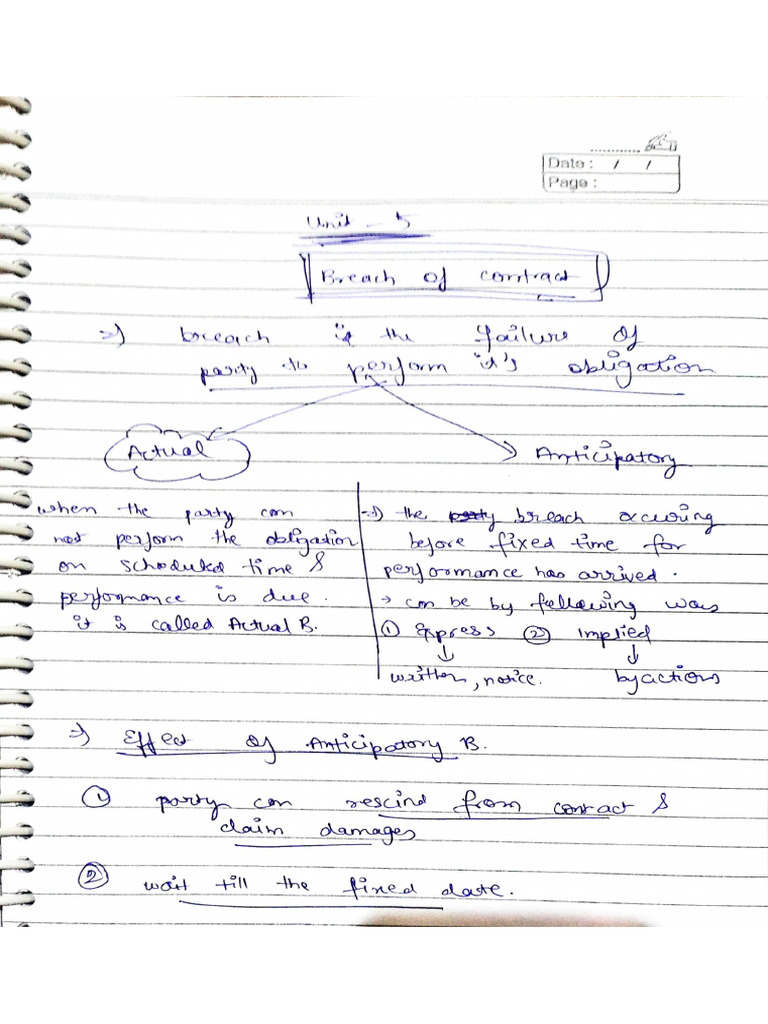 Date : / /
Page :
Unit - 5
Breach of contract
=> breach is the failure of
party to perform it's obligation
Actual
Anticipatory
when the party can
not perform the obligation
on scheduled time &
performance is due.
it is called Actual B.
=> the party breach occuring
before fixed time for
performance has arrived.
→ can be by following ways
① Express ② Implied
↓ ↓
written, notice. by actions
=> Effect of Anticipatory B.
① party can rescind from contract &
claim damages
② wait till the fixed date.